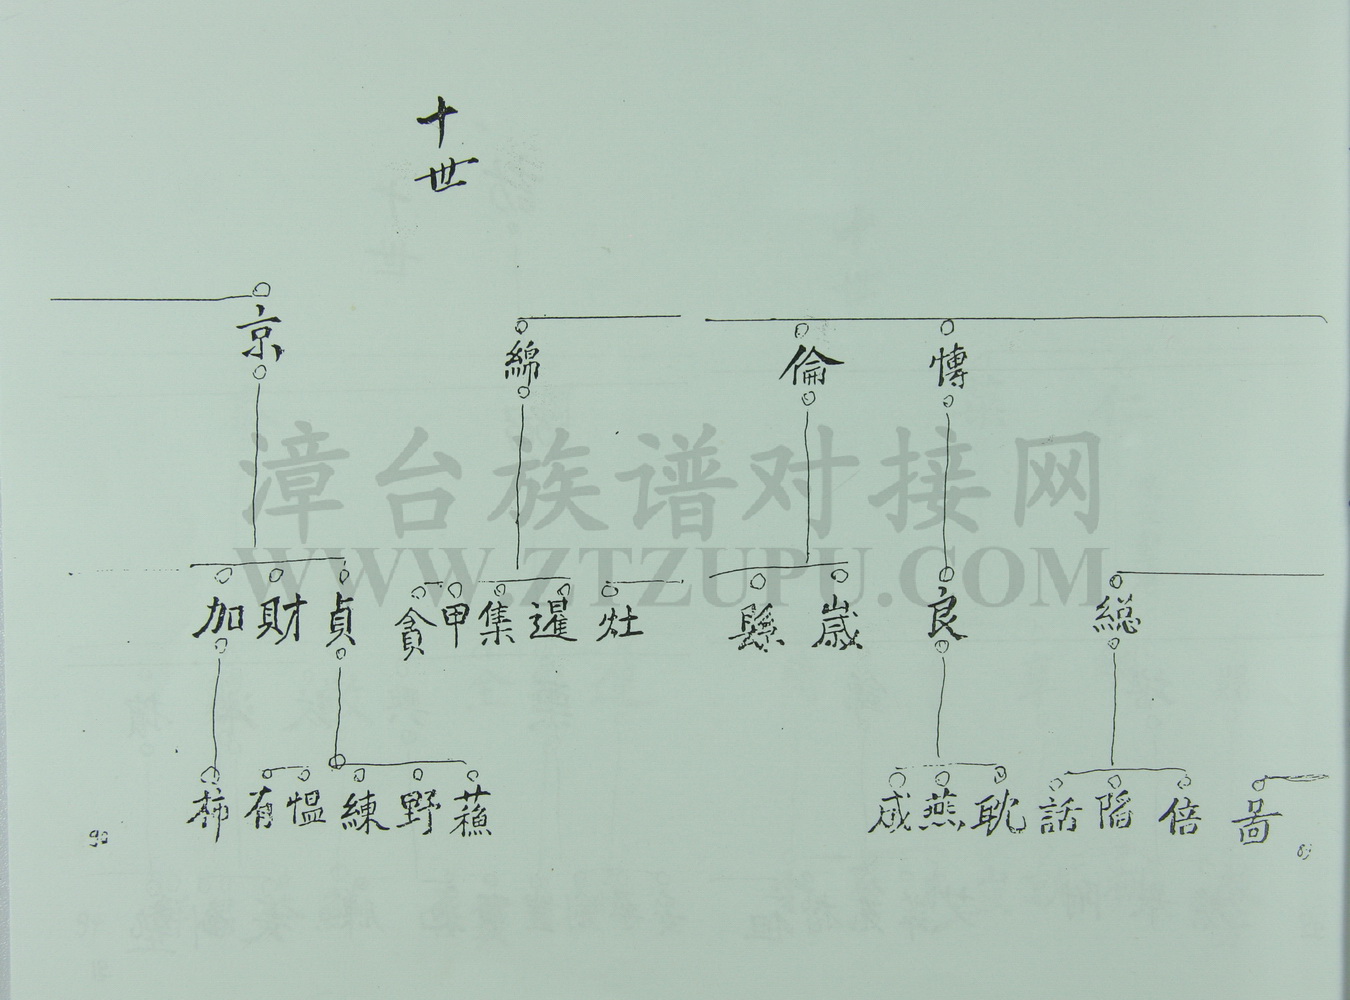 十世
京 綿 倫 慱
加 財 貞 貪 甲 集 暹 灶 縣 嵗 良 總
柿 有 愠 練 野 蘓 咸 燕 耽 話 陷 倍 啚
90
89
漳台族谱对接网
WWW.ZTZUPU.COM